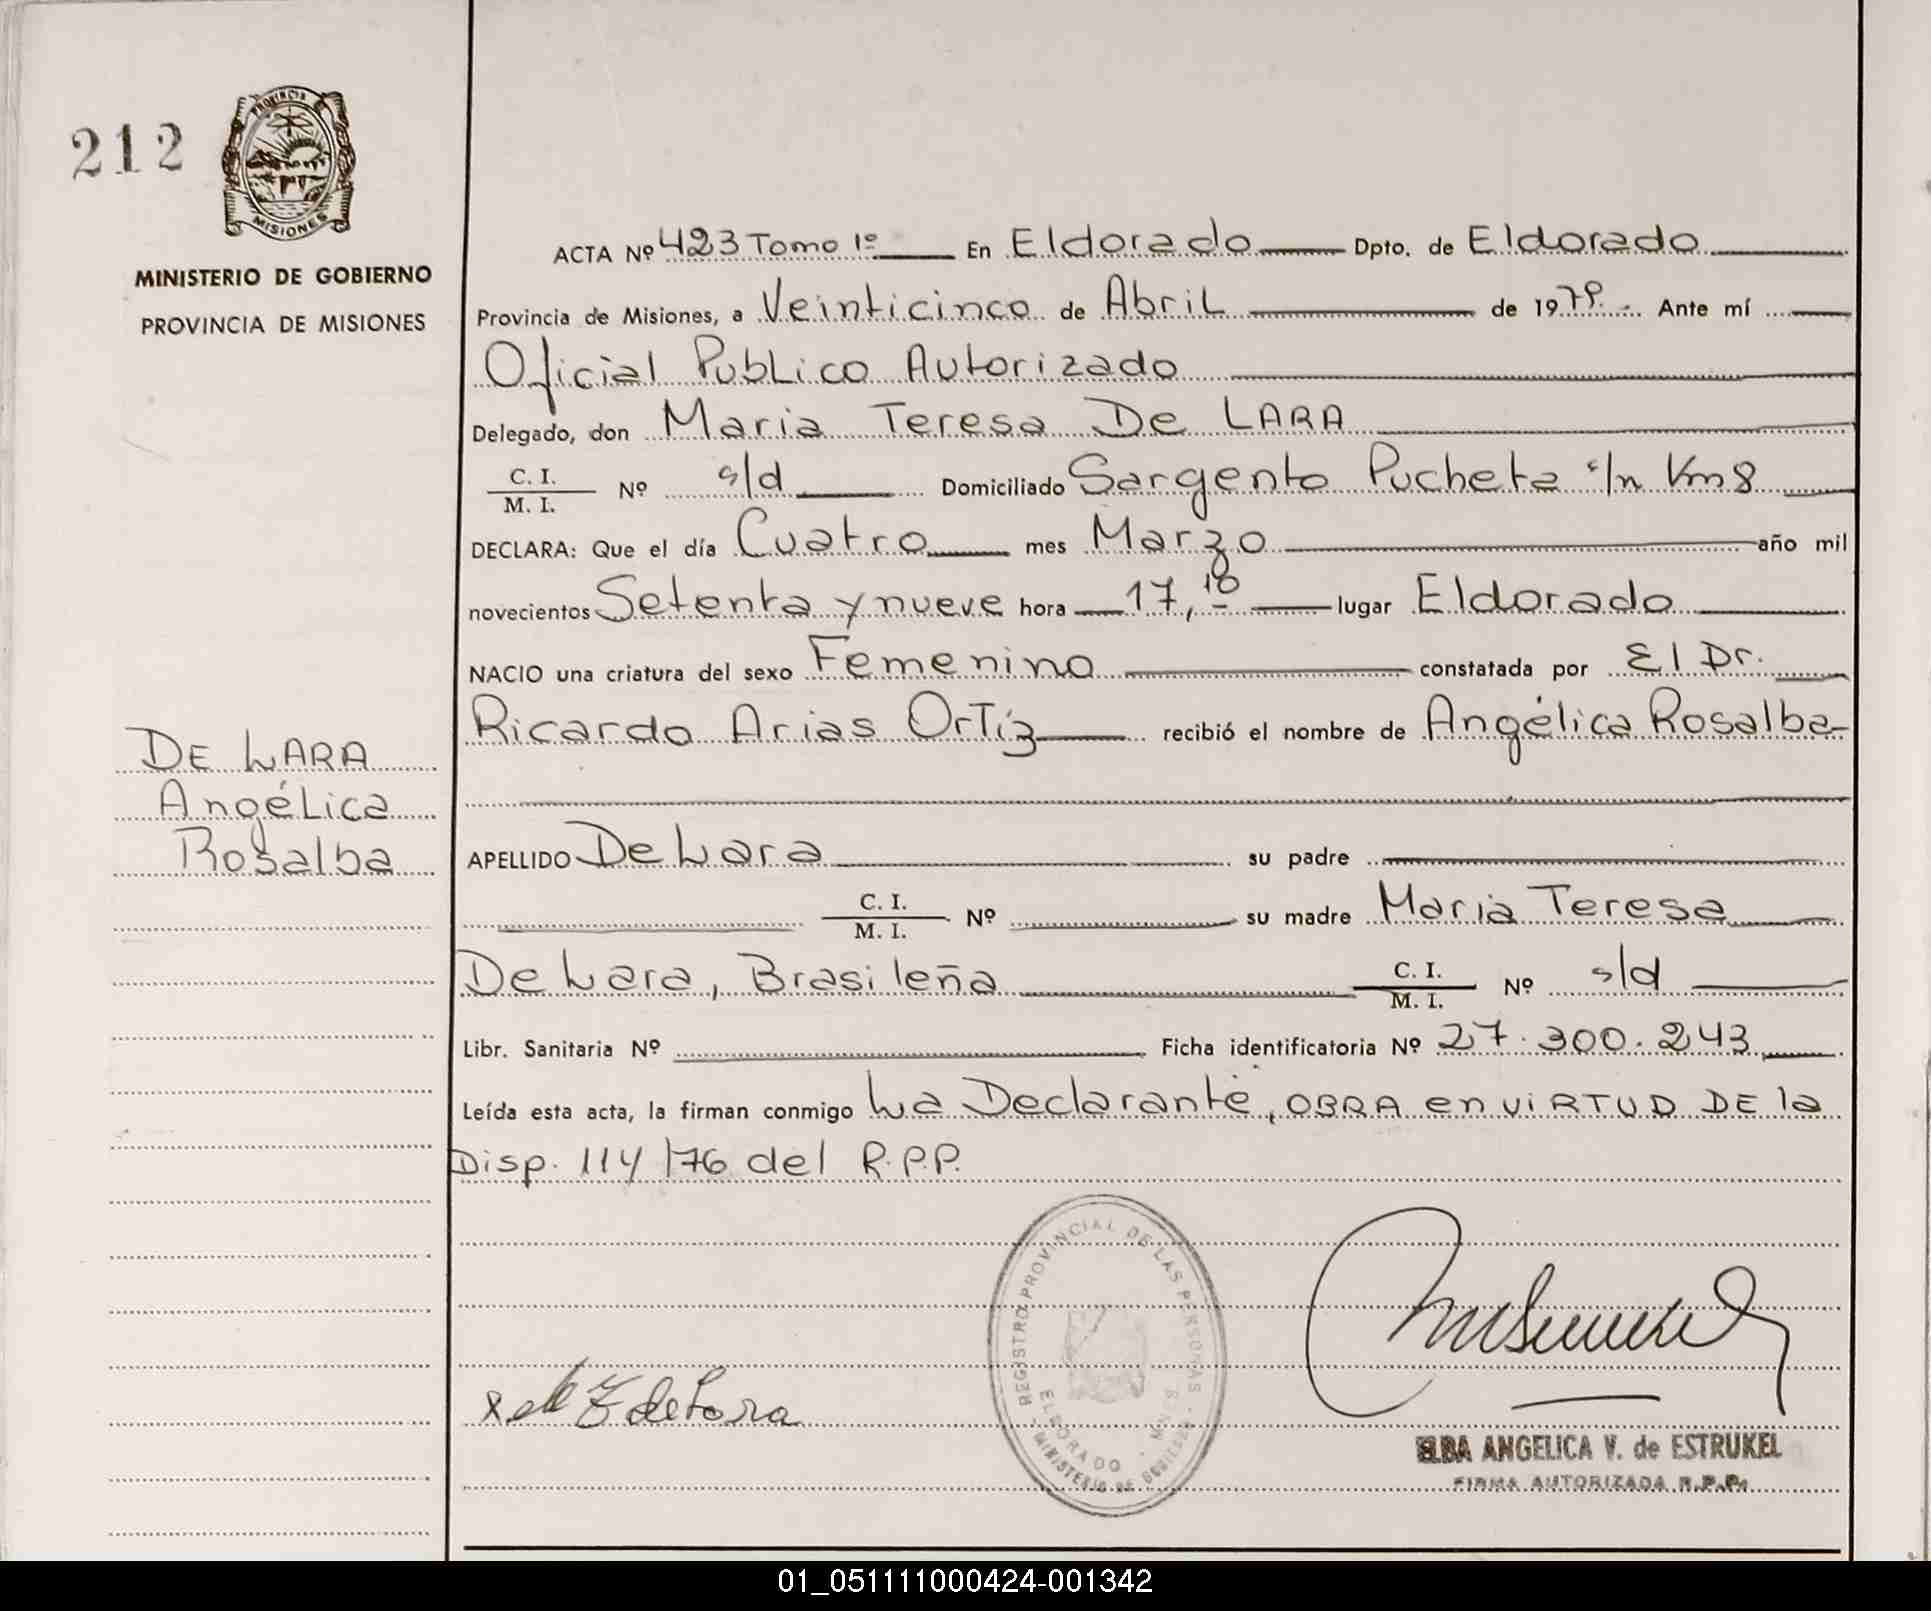 212
PROVINCIA
MISIONES
MINISTERIO DE GOBIERNO
PROVINCIA DE MISIONES
DE LARA
Angélica
Rosalba
ACTA Nº 423 Tomo 1º En Eldorado Dpto. de Eldorado
Provincia de Misiones, a Veinticinco de Abril de 1979.- Ante mí
Oficial Publico Autorizado
Delegado, don Maria Teresa De LARA
C. I.
M. I. Nº s/d Domiciliado Sargento Pucheta s/n Km 8
DECLARA: Que el día Cuatro mes Marzo año mil
novecientos Setenta y nueve hora 17,10 lugar Eldorado
NACIO una criatura del sexo Femenino constatada por El Dr.
Ricardo Arias Ortíz recibió el nombre de Angélica Rosalba-
APELLIDO De Lara su padre
C. I.
M. I. Nº su madre Maria Teresa
De Lara, Brasileña C. I.
M. I. Nº s/d
Libr. Sanitaria Nº Ficha identificatoria Nº 27.300.243
Leída esta acta, la firman conmigo La Declarante, OBRA en viRTUD DE la
Disp. 114/76 del R.P.P.
REGISTRO PROVINCIAL DE LAS PERSONAS
ELDORADO
MINISTERIO DE GOBIERNO
de Lara
ELBA ANGELICA V. de ESTRUKEL
FIRMA AUTORIZADA R.P.P.
01_051111000424-001342